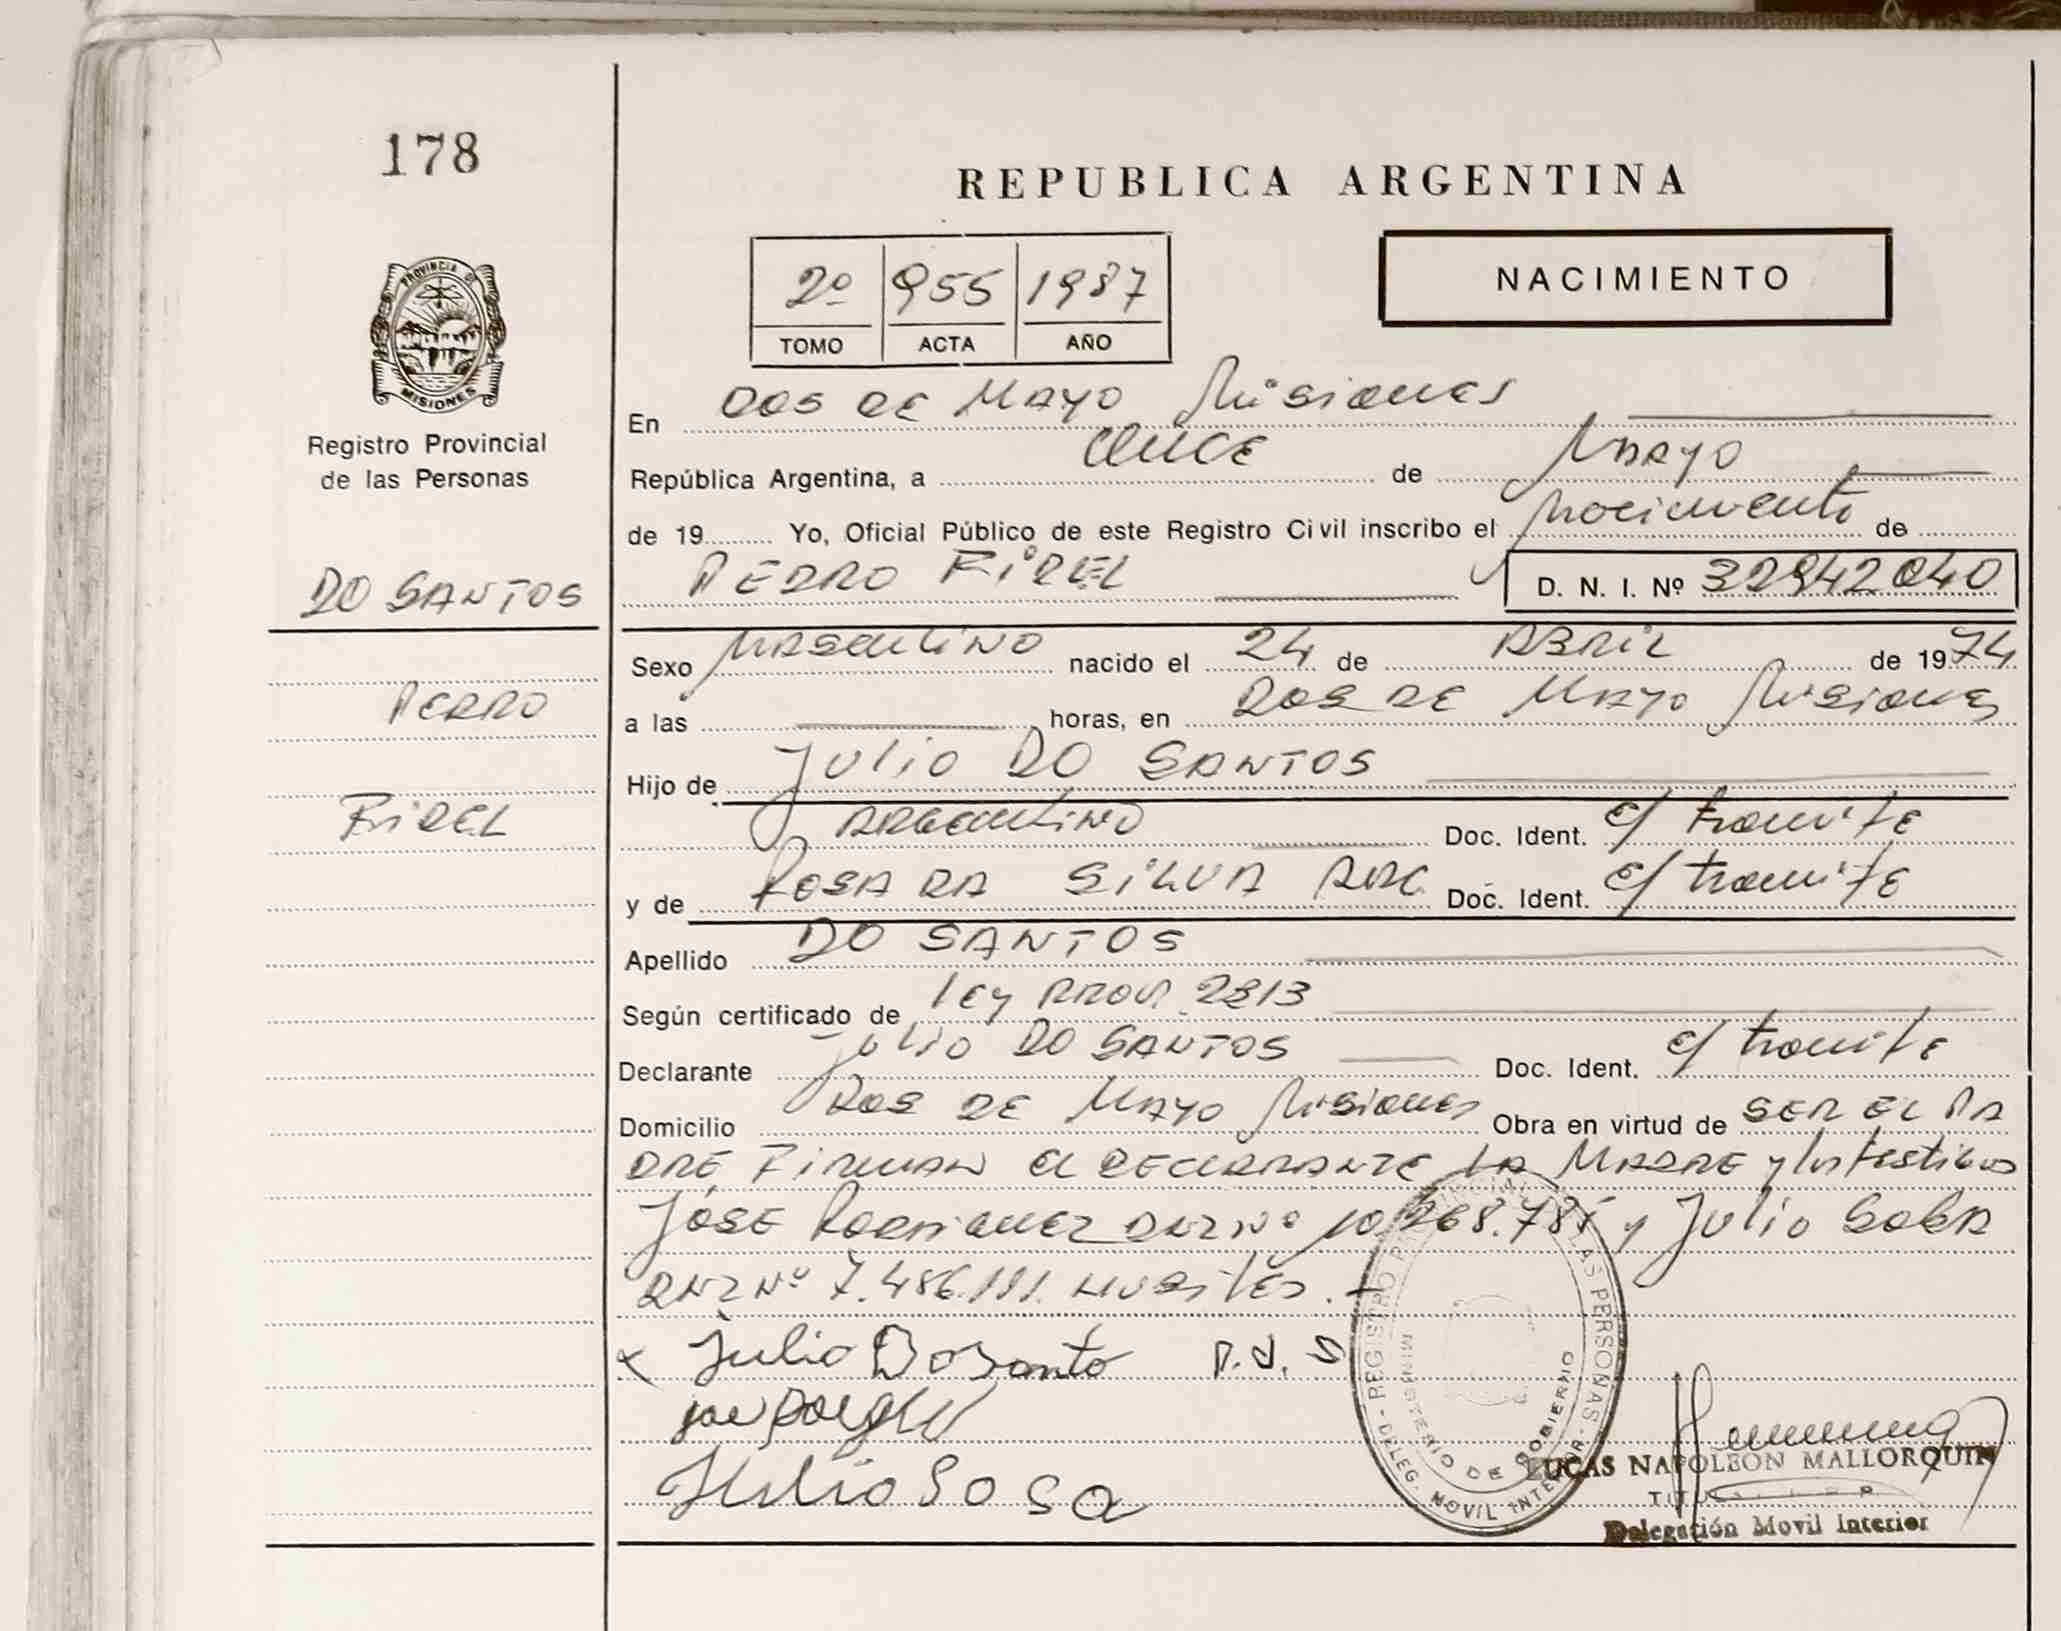 178
REPUBLICA ARGENTINA
PROVINCIA DE
MISIONES
Registro Provincial
de las Personas
2º 955 1987
TOMO ACTA AÑO
NACIMIENTO
En DOS DE MAYO Misiones
República Argentina, a ONCE de MAYO
de 19 Yo, Oficial Público de este Registro Civil inscribo el Nacimiento de
DO SANTOS
PEDRO FIDEL D. N. I. Nº 32942040
Sexo MASCULINO nacido el 24 de ABRIL de 1974
PEDRO
a las horas, en DOS DE MAYO Misiones
Hijo de Julio DO SANTOS
FIDEL
ARGENTINO Doc. Ident. e/ tramite
y de ROSA DA SILVA ARG. Doc. Ident. e/ tramite
Apellido DO SANTOS
Según certificado de ley PROV. 2313
Declarante Julio DO SANTOS Doc. Ident. e/ tramite
Domicilio DOS DE MAYO Misiones Obra en virtud de SER EL PA
DRE, FIRMAN EL DECLARANTE LA MADRE y los testigos
JOSE RODRIGUEZ DNI Nº 10.268.781 y Julio SOSA
DNI Nº 7.486.191.
x Julio Do Santo R.d.S
Julio Sosa
REGISTRO PROVINCIAL DE LAS PERSONAS
MINISTERIO DE GOBIERNO
DELEG. MOVIL INTERIOR
LUCAS NAPOLEON MALLORQUIN
Delegación Movil Interior